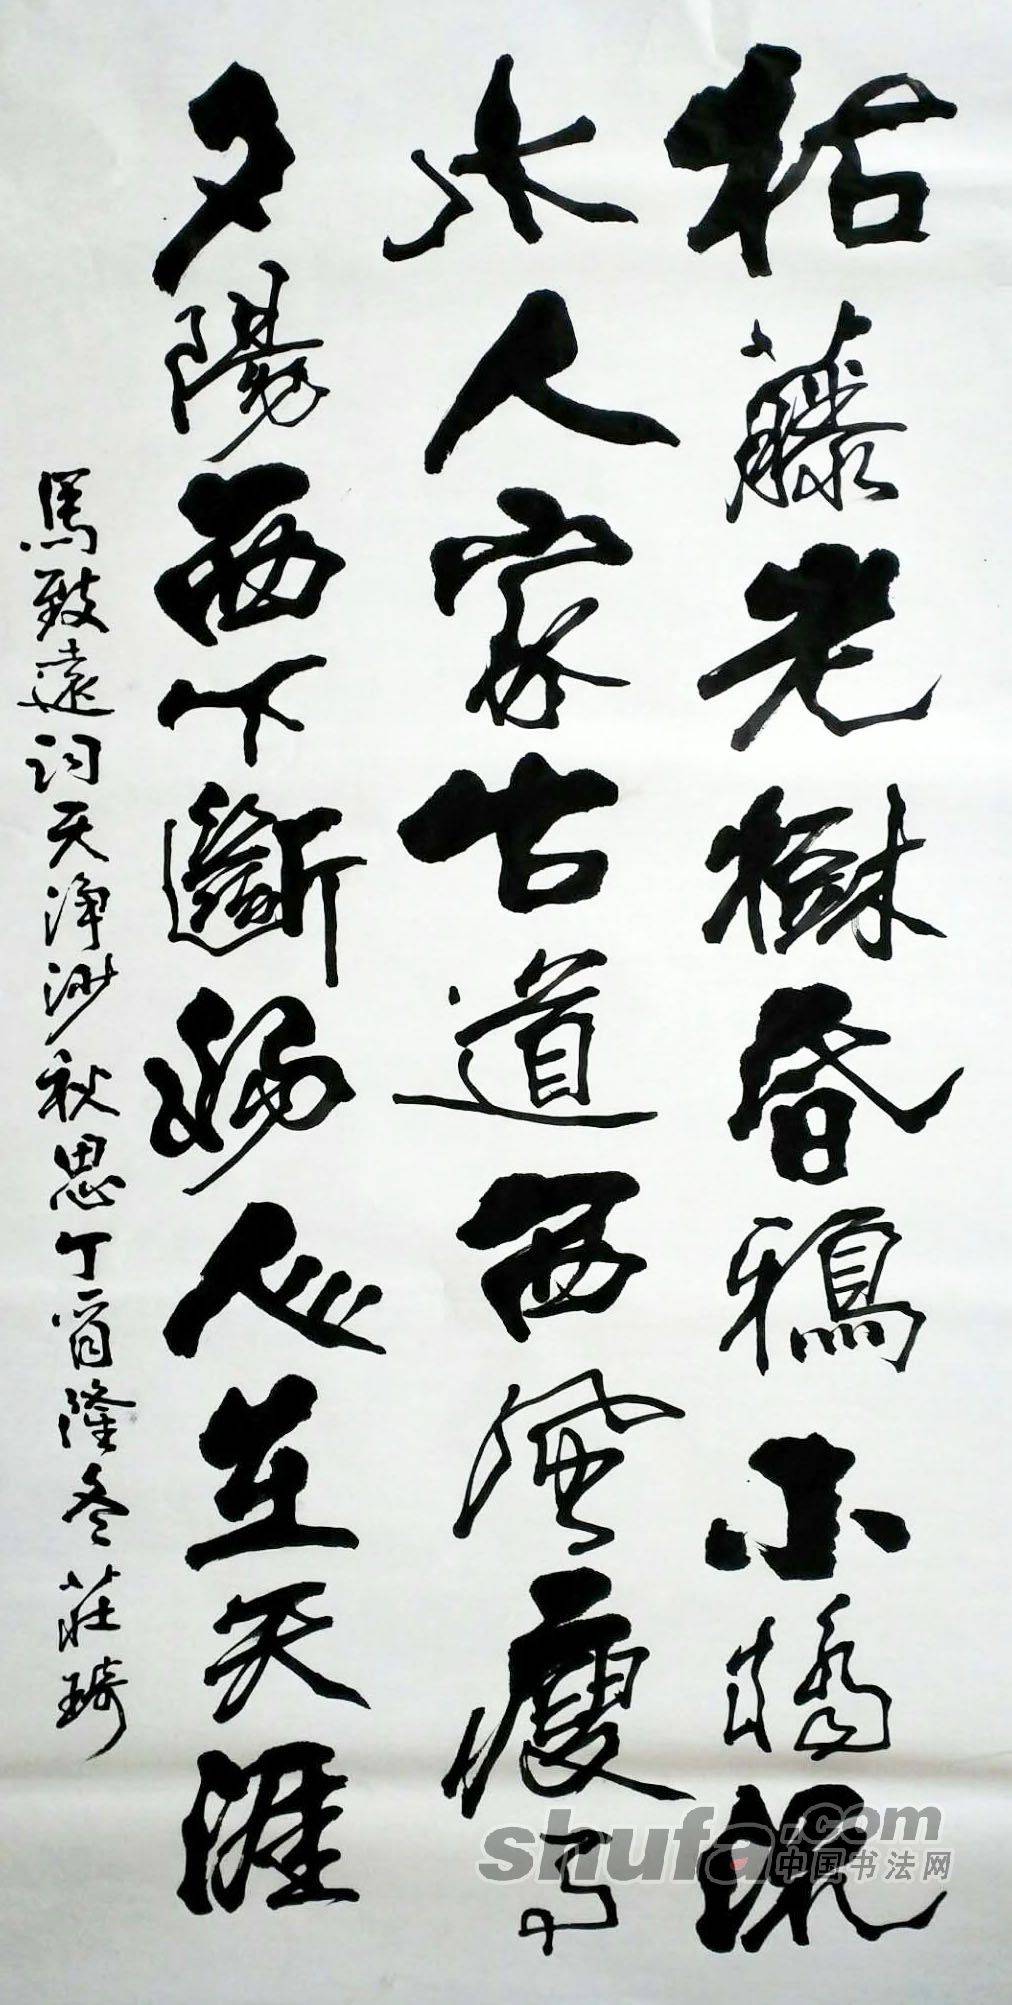 枯藤老樹昏鴉小橋流
水人家古道西風瘦马
夕陽西下斷腸人心在天涯
馬致遠词天净沙秋思丁酉隆冬莊琦
shufa.com
中国书法网